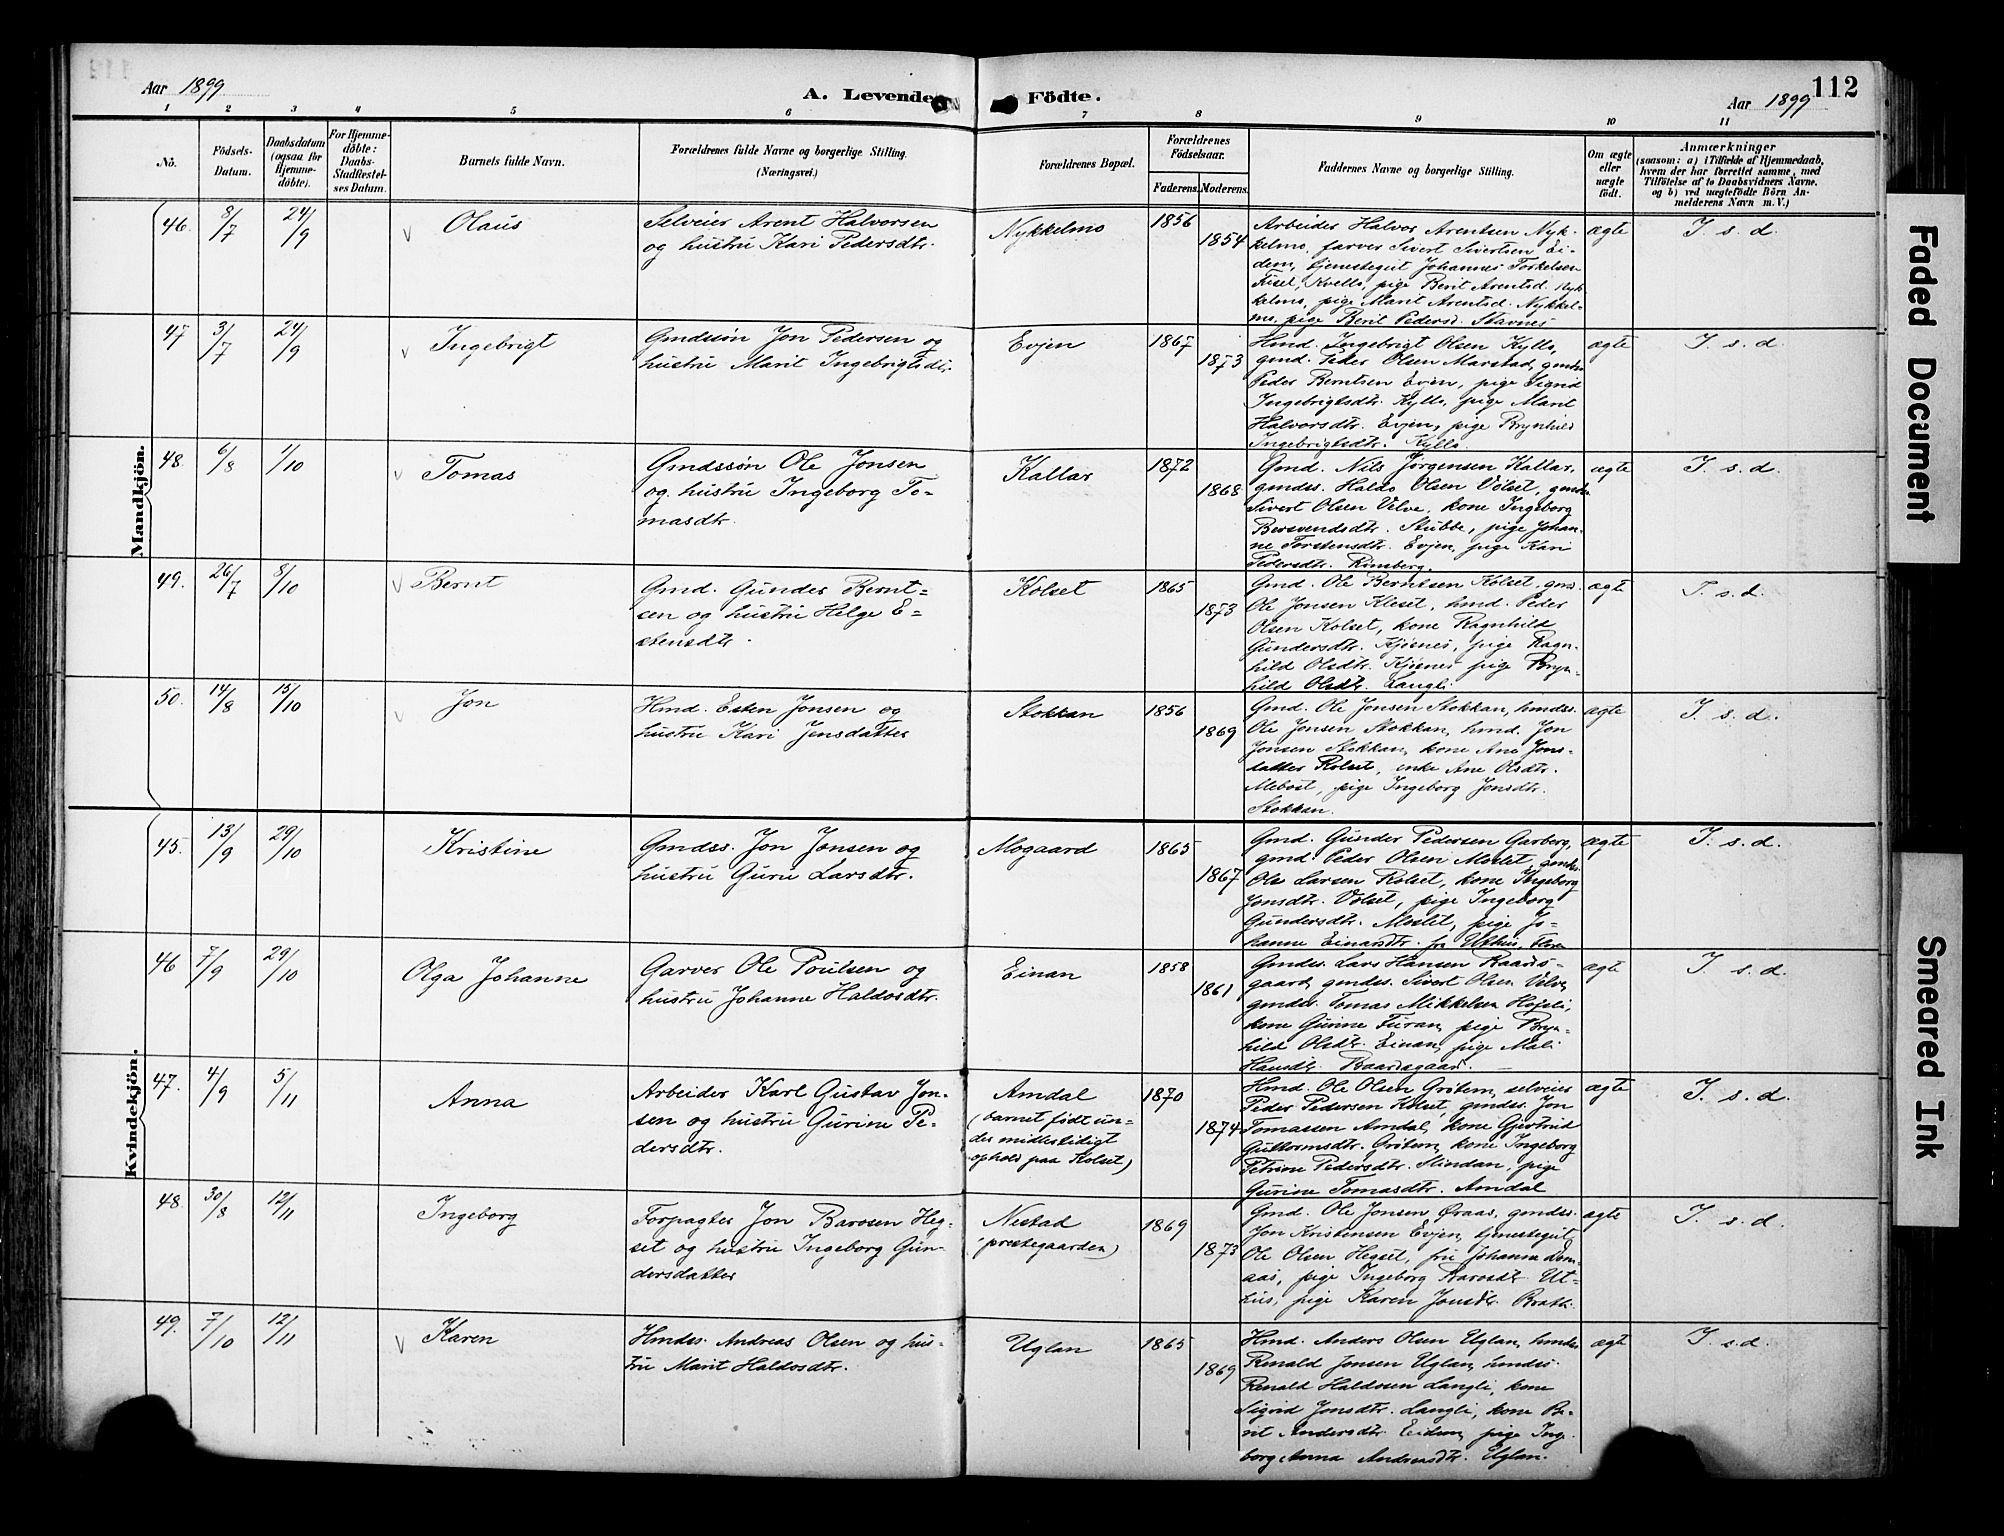 112
Aar 1899
A. Levende Födte.
Aar 1899
1 2 3 4 5 6 7 8 9 10 11
No.
Födsels-Datum.
Daabsdatum (ogsaa for Hjemme-döbte).
For Hjemme-döbte: Daabs-Stadfæstel-ses Datum.
Barnets fulde Navn.
Forældrenes fulde Navne og borgerlige Stilling.
(Næringsvei.)
Forældrenes Bopæl.
Forældrenes Födselsaar.
Faderens. Moderens.
Faddernes Navne og borgerlige Stilling.
Om ægte eller uægte født.
Anmærkninger
(saasom: a) i Tilfælde af Hjemmedaab,
hvem der har forrettet samme, med
Tilföielse af to Daabsvidners Navne,
og b) ved uægtefödte Börn An-
melderens Navn m. V.)
Mandkjön.
46. 8/7 24/9 Olaus
Selveier Arent Halvorsen
og hustru Kari Pedersdtr.
Nykkelmo 1856 1854
Arbeider Halvor Arentsen Nyk-
kelmo, farver Sivert Sivertsen Ei-
dem, tjenestegut Johannes Torkelsen
Kvello, pige Berit Arentsd. Nyk-
kelmo, pige Marit Arentsd. Nykkel-
mo, pige Berit Pedersd. Stavnes.
ægte I. s. d.
47 3/7 24/9 Ingebrigt
Gmdssøn Jon Pedersen og
hustru Marit Ingebrigtsdtr.
Evjen 1867 1873
Hmd. Ingebrigt Olsen Kyllo,
gmd. Peder Olsen Marstad, gmds.
Peder Berntsen Evjen, pige Sigrid
Ingebrigtsdtr. Kyllo, pige Marit
Halvorsdtr. Evjen, pige Brynhild
Ingebrigtsdtr. Kyllo.
ægte I. s. d.
48. 6/8 1/10 Tomas
Gmdssøn Ole Jonsen
og hustru Ingeborg To-
masdtr.
Kallar 1872 1868
Gmd. Nils Jörgensen Kallar,
gmdss. Haldo Olsen Volset, gmds.
Sivert Olsen Velve, kone Ingeborg
Bersvendsdtr. Stubbe, pige Johan-
ne Torstensdtr. Evjen, pige Kari
Pedersdtr. Rönsberg.
ægte I. s. d.
49. 26/7 8/10 Bernt
Gmd. Gunder Bernt-
sen og hustru Helge E-
stensdtr.
Kolset 1865 1873
Gmd. Ole Berntsen Kolset, gmd.
Ole Jonsen Kleset, hmd. Peder
Olsen Kolset, kone Ragnhild
Gundersdtr. Kjösnes, pige Ragn-
hild Olsdtr. Kjösnes pige Bryn-
hild Olsdtr. Langli
ægte I. s. d.
50. 14/8 15/10 Jon
Hmd. Esten Jonsen og
hustru Kari Jensdatter
Stokkan 1856 1869
Gmd. Ole Jonsen Stokkan, hmdss.
Ole Jonsen Stokkan, hmd. Jon
Jonsen Stokkan, kone Ane Jons-
datter Rolset, enke Ane Olsdtr.
Mebost, pige Ingeborg Jonsdtr.
Stokkan.
ægte I. s. d.
Kvindekjön.
45. 13/9 29/10 Kristine
Gmdss. Jon Jonsen og
hustru Guru Larsdtr.
Mogaard 1865 1867
Gmd. Gunder Pedersen Garberg,
gmd. Peder Olsen Moslet, gmds.
Ole Larsen Rolset, kone Ingeborg
Jonsdtr. Volset, pige Ingeborg
Gundersdtr. Moslet, pige Jo-
hanne Einarsdtr. fra Uthus, Flora
ægte I. s. d.
46 7/9 29/10 Olga Johanne
Garver Ole Poulsen og
hustru Johanne Haldosdtr.
Einan 1858 1861
Gmdss. Lars Hansen Baards-
gaard, gmdss. Sivert Olsen Velve,
gmdss. Tomas Mikkelsen Hojsli,
kone Gurine Furan, pige Bryn-
hild Olsdtr. Einan, pige Mali
Hansdtr. Baardsgaard.
ægte I. s. d.
47. 4/9 5/11 Anna
Arbeider Karl Gustav Jon-
sen og hustru Gurine Pe-
dersdtr.
Amdal
(barnet født un-
der midlertidigt
ophold paa Kolset)
1870 1874
Hmd. Ole Olsen Grötem, selveier
Peder Pedersen Kolset, gmdss. Jon
Tomassen Amdal, kone Gjertrud
Guttormsdtr. Grötem, kone Ingeborg
Petrine Pedersdtr. Slindan, pige
Gurine Tomasdtr. Amdal
ægte I. s. d.
48. 30/8 12/11 Ingeborg
Forpagter Jon Barosen Heg-
set og hustru Ingeborg Gun-
dersdatter
Nestad
(prestegaarden)
1869 1873
Gmd. Ole Jonsen Øraas, gmdss.
Jon Kristensen Evjen, tjenestegut
Ole Olsen Hegset, fru Johanna Dom-
aas, pige Ingeborg Barosdtr. Ut-
hus, pige Karen Jonsdtr. Brath.
ægte I. s. d.
49. 7/10 12/11 Karen
Hmdss. Andreas Olsen og hus-
tru Marit Haldosdtr.
Uglan 1865 1869
Hmd. Anders Olsen Uglan, hmdss.
Renald Jonsen Uglan, hmdss.
Renald Haldosen Langli, kone
Sigrid Jonsdtr. Langli, kone Be-
rit Andersdtr. Eidem, pige Inge-
borg Anna Andreasdtr. Uglan.
ægte I s. d.
Faded Document
Smeared Ink